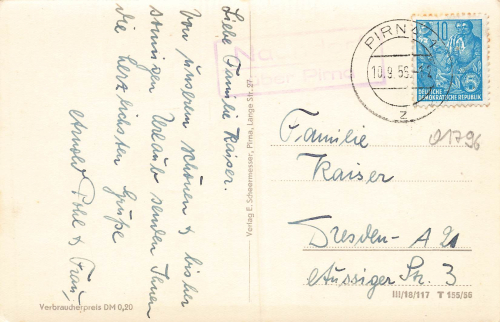 Liebe Familie Kaiser.
Von unserem schönen & bisher
sonnigen Urlaub senden Ihnen
die herzlichsten Grüße
Arnold Pohl & Frau,
Verbraucherpreis DM 0,20
Verlag E. Scheermesser, Pirna, Lange Str. 27
über Pirna
PIRNA
10.9.56.
z
10
DEUTSCHE
DEMOKRATISCHE REPUBLIK
01796
Familie
Kaiser
Dresden-A 21
Aussiger Str. 3
III/18/117 T 155/56